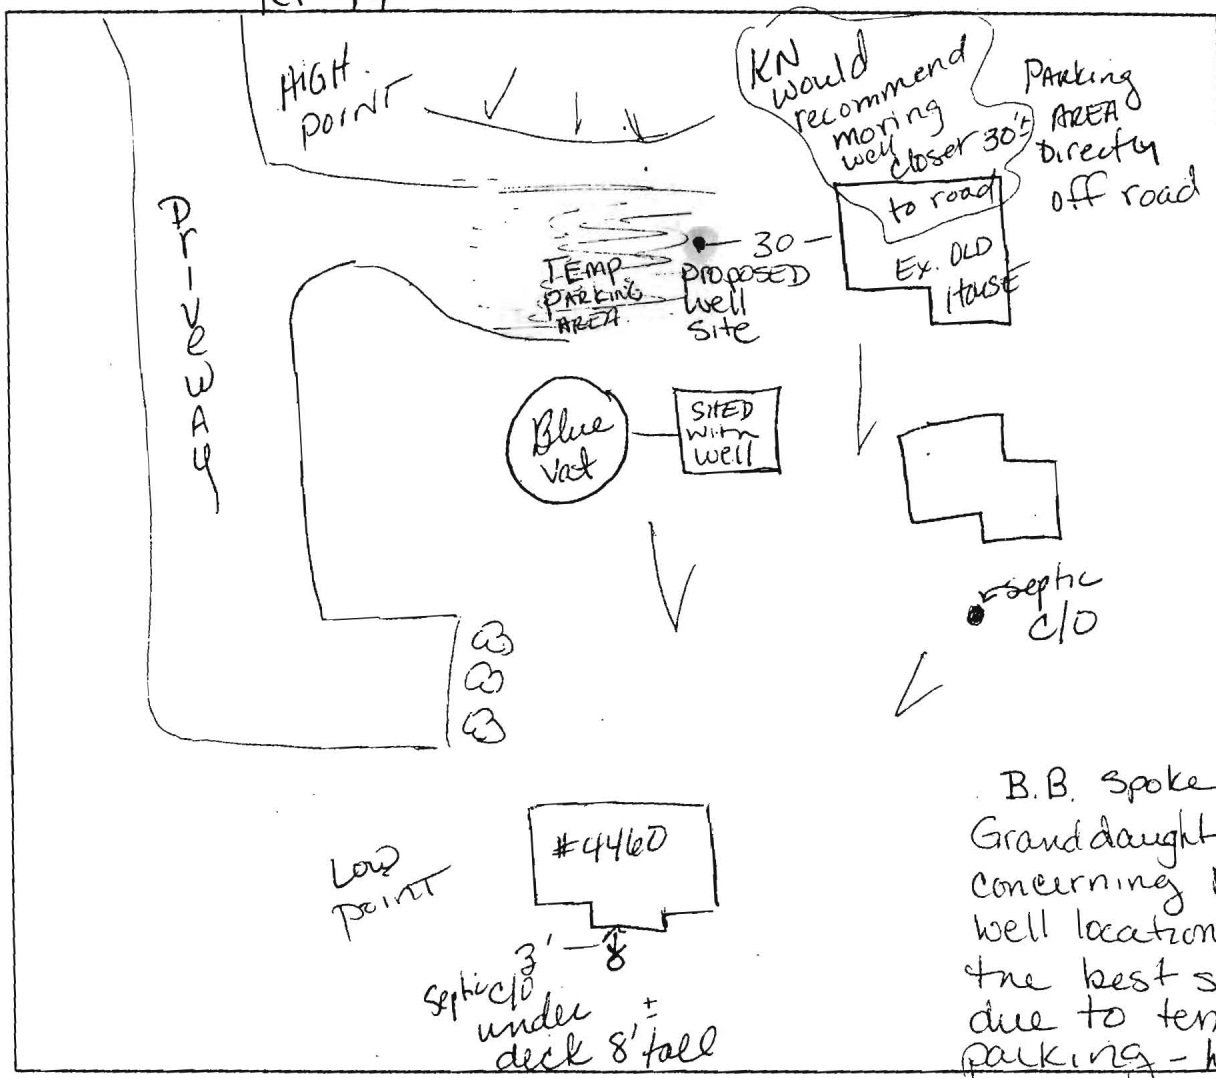 HIGH
POINT
KN
would
recommend
moving
well
closer 30'±
to road
PARKING
AREA
Directly
off road
Driveway
TEMP
PARKING
AREA
30
PROPOSED
well
site
Ex. OLD
House
Blue
Vat
SHED
with
well
septic
c/o
Low
point
#4460
3'
8
septic c/o
under
deck 8'± tall
B.B. spoke
Granddaught
concerning
well location
the best s
due to tem
parking -